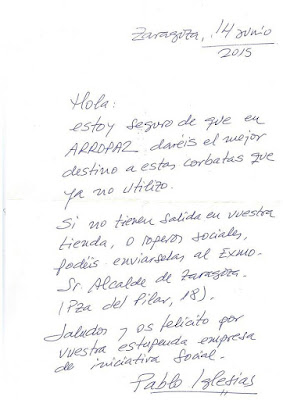 Zaragoza, 14 junio
2015
Hola:
estoy seguro de que en
ARROPAZ daréis el mejor
destino a estas corbatas que
ya no utilizo.
Si no tienen salida en vuestra
tienda, o roperos sociales,
podéis enviárselas al Exmo.
Sr. Alcalde de Zaragoza.
(Pza del Pilar, 18).
Saludos y os felicito por
vuestra estupenda empresa
de iniciativa social.
Pablo Iglesias